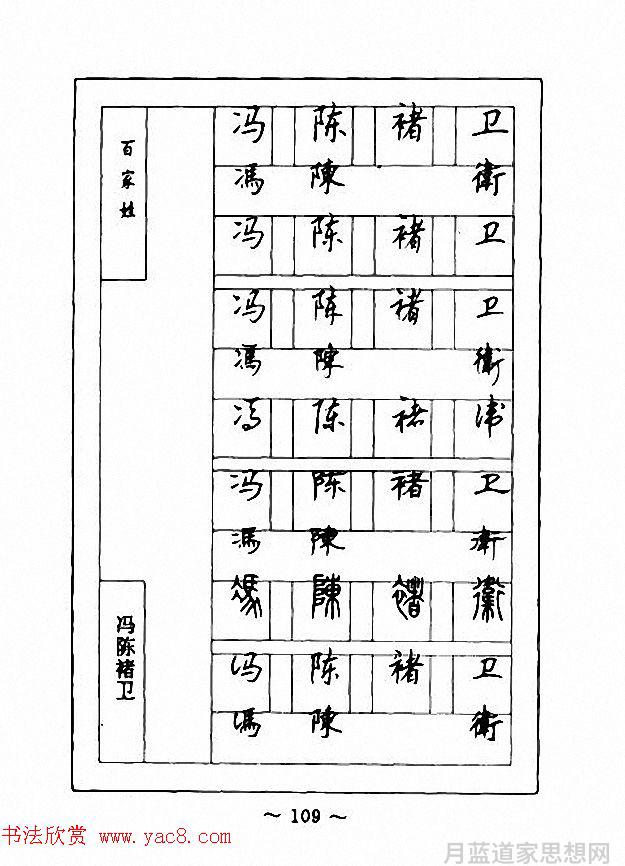 百家姓
冯 陈 褚 卫
馮 陳 衛
冯 陈 褚 卫
冯 陈 褚 卫
馮 陳 衛
冯 陈 褚 卫
冯 陈 褚 卫
馮 陳 衛
馮 陳 褚 衛
冯 陈 褚 卫
馮 陳 衛
冯陈褚卫
~ 109 ~
书法欣赏 www.yac8.com
月蓝道家思想网